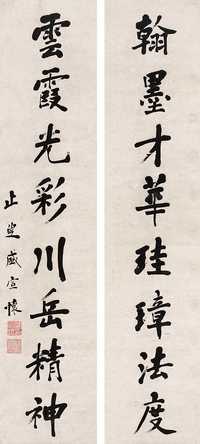 翰墨才華珪璋法度
雲霞光彩川岳精神
止叟盛宣懷